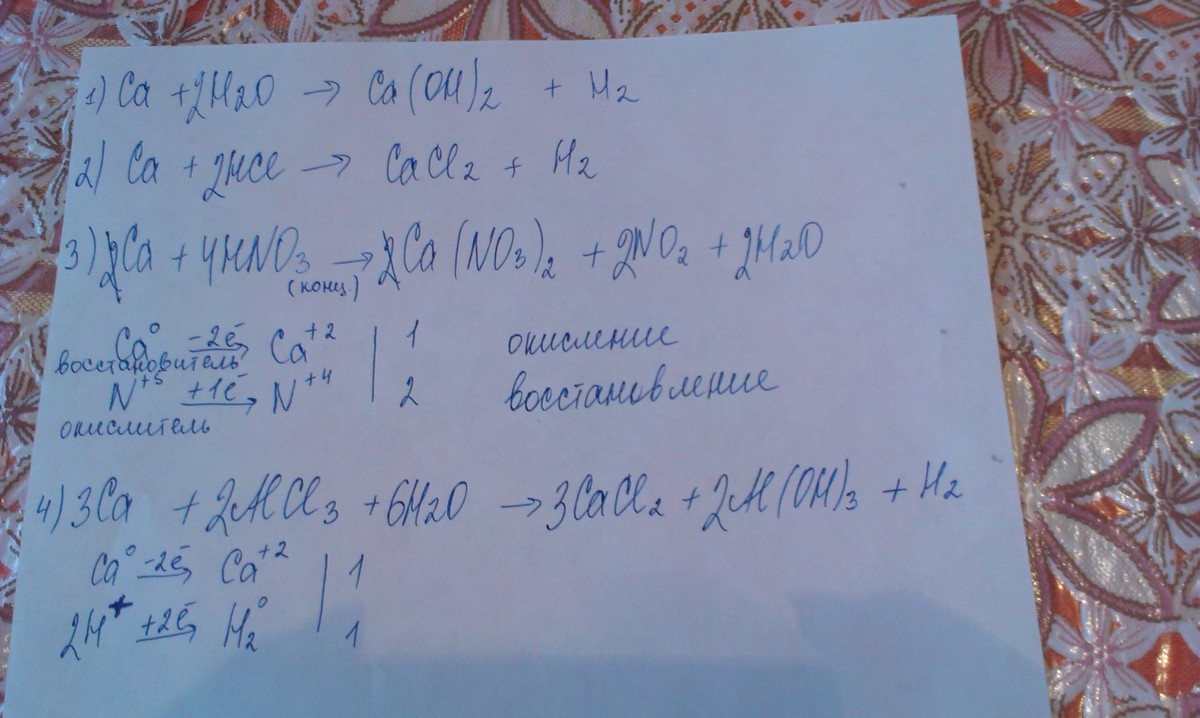 1) Ca + 2H2O → Ca(OH)2 + H2
2) Ca + 2HCl → CaCl2 + H2
3) Ca + 4HNO3 → Ca(NO3)2 + 2NO2 + 2H2O
(конц.)
Ca⁰ -2ē → Ca⁺² | 1 окисление
восстановитель
N⁺⁵ +1ē → N⁺⁴ | 2 восстановление
окислитель
4) 3Ca + 2AlCl3 + 6H2O → 3CaCl2 + 2Al(OH)3 + H2
Ca⁰ -2ē → Ca⁺² | 1
2H⁺ +2ē → H2⁰ | 1